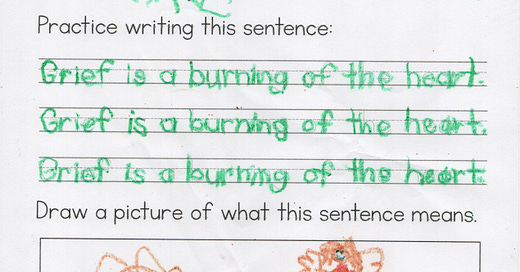 Practice writing this sentence:
Grief is a burning of the heart.
Grief is a burning of the heart.
Grief is a burning of the heart.
Draw a picture of what this sentence means.